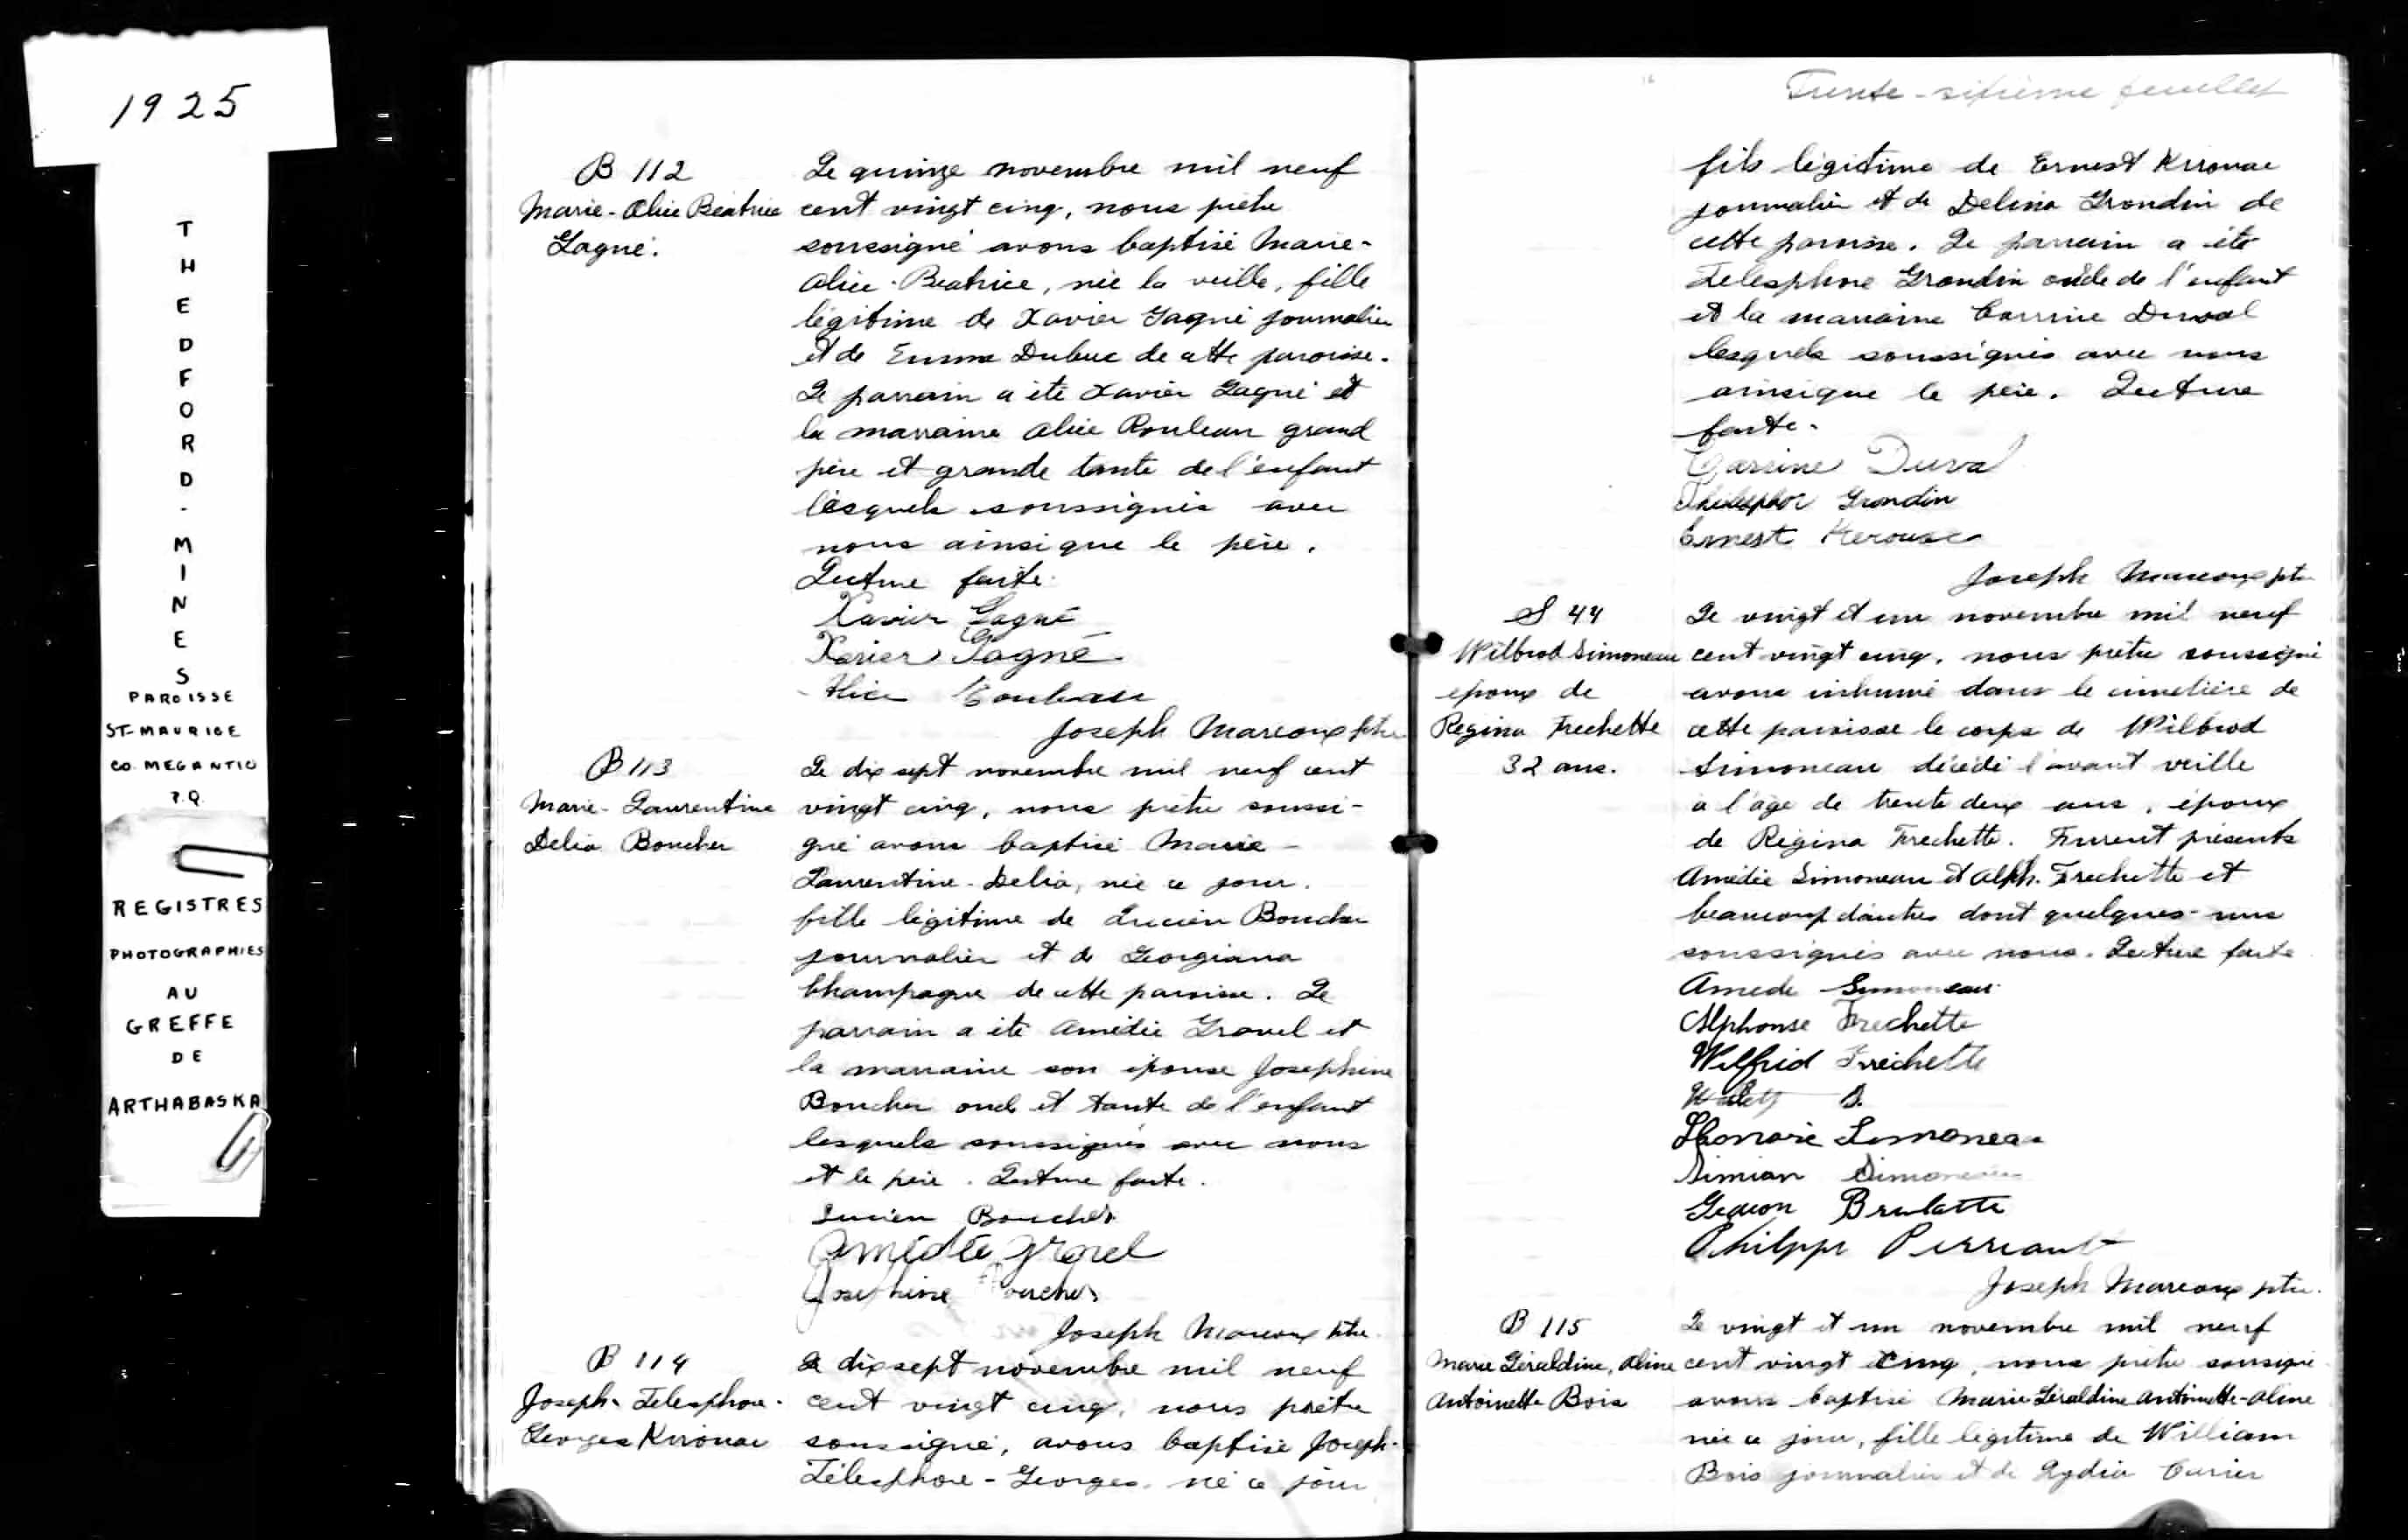 1925
THEDFORD-MINES
PAROISSE
ST-MAURICE
CO. MEGANTIC
P.Q.
REGISTRES
PHOTOGRAPHIES
AU
GREFFE
DE
ARTHABASKA
B 112
Marie-Alice Béatrice
Gagné.
Le quinze novembre mil neuf
cent vingt cinq, nous prêtre
soussigné avons baptisé Marie-
Alice-Béatrice, née la veille, fille
légitime de Xavier Gagné journalier
et de Emma Dubuc de cette paroisse.
Le parrain a été Xavier Gagné et
la marraine Alice Rouleau grand
père et grande tante de l'enfant
lesquels soussignés avec
nous ainsi que le père.
Lecture faite.
Xavier Gagné
Xavier Gagné
Alice Rouleau
Joseph Marcoux ptre
B 113
Marie-Laurentine
Delia Boucher
Le dix sept novembre mil neuf cent
vingt cinq, nous prêtre soussi-
gné avons baptisé Marie-
Laurentine-Delia, née ce jour.
fille légitime de Lucien Boucher
journalier et de Georgiana
Champagne de cette paroisse. Le
parrain a été Amédée Gravel et
la marraine son épouse Josephine
Boucher oncle et tante de l'enfant
lesquels soussignés avec nous
et le père. Lecture faite.
Lucien Boucher
Amédée Gravel
Josephine Boucher
Joseph Marcoux ptre.
B 114
Joseph-Telesphore-
Georges Kirouac
Le dix sept novembre mil neuf
cent vingt cinq, nous prêtre
soussigné, avons baptisé Joseph-
Télesphore-Georges, né ce jour
Trente-sixième feuillet
fils légitime de Ernest Kirouac
journalier et de Delina Grondin de
cette paroisse. Le parrain a été
Télesphore Grondin oncle de l'enfant
et la marraine Corrine Duval
lesquels soussignés avec nous
ainsi que le père. Lecture
faite.
Corrine Duval
Grondin
Ernest
Joseph Marcoux ptre
S 44
Wilbrod Simoneau
époux de
Regina Frechette
32 ans.
Le vingt et un novembre mil neuf
cent vingt cinq, nous prêtre soussigné
avons inhumé dans le cimetière de
cette paroisse le corps de Wilbrod
Simoneau décédé l'avant veille
à l'âge de trente deux ans, époux
de Régina Frechette. Furent présents
Amédée Simoneau et Alph. Frechette et
beaucoup d'autres dont quelques-uns
soussignés avec nous. Lecture faite
Amede Simoneau
Alphonse Frechette
Wilfrid Frechette
Simoneau
Simoneau
Gedeon Brulotte
Philippe Perreault
Joseph Marcoux ptre.
B 115
Marie Géraldine, Aline
Antoinette Bois
Le vingt et un novembre mil neuf
cent vingt cinq, nous prêtre soussigné
avons baptisé Marie Géraldine Antoinette-Aline
née ce jour, fille légitime de William
Bois journalier et de Lydia